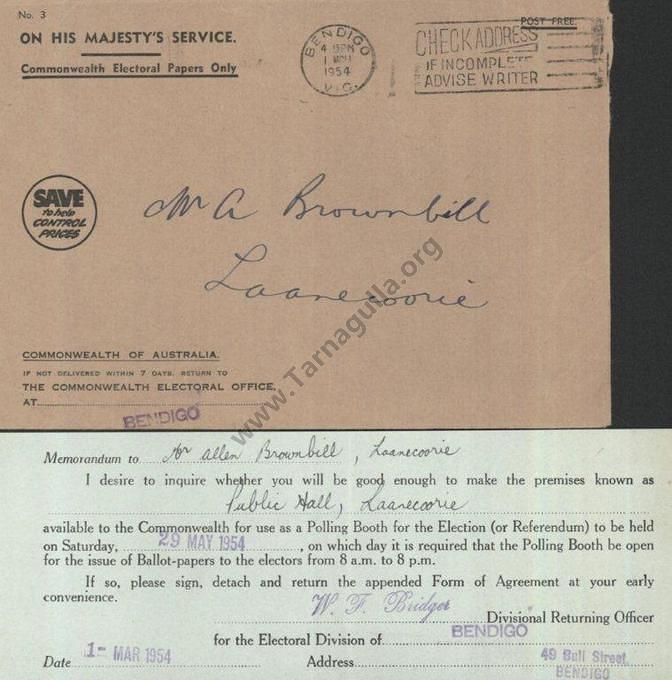 No. 3
POST FREE.
ON HIS MAJESTY'S SERVICE.
Commonwealth Electoral Papers Only
BENDIGO
4 30PM
1 MCH
1954
VIC.
CHECK ADDRESS
IF INCOMPLETE
ADVISE WRITER
SAVE
to help
CONTROL
PRICES
Mr A Brownbill
Laanecoorie
www.Tarnagulla.org
COMMONWEALTH OF AUSTRALIA.
IF NOT DELIVERED WITHIN 7 DAYS, RETURN TO
THE COMMONWEALTH ELECTORAL OFFICE,
AT
BENDIGO
Memorandum to Mr Allen Brownbill, Laanecoorie
I desire to inquire whether you will be good enough to make the premises known as
Public Hall, Laanecoorie
available to the Commonwealth for use as a Polling Booth for the Election (or Referendum) to be held
on Saturday, 29 MAY 1954, on which day it is required that the Polling Booth be open
for the issue of Ballot-papers to the electors from 8 a.m. to 8 p.m.
If so, please sign, detach and return the appended Form of Agreement at your early
convenience.
W. F. Bridger
Divisional Returning Officer
for the Electoral Division of BENDIGO
Date 1- MAR 1954 Address 49 Bull Street,
BENDIGO